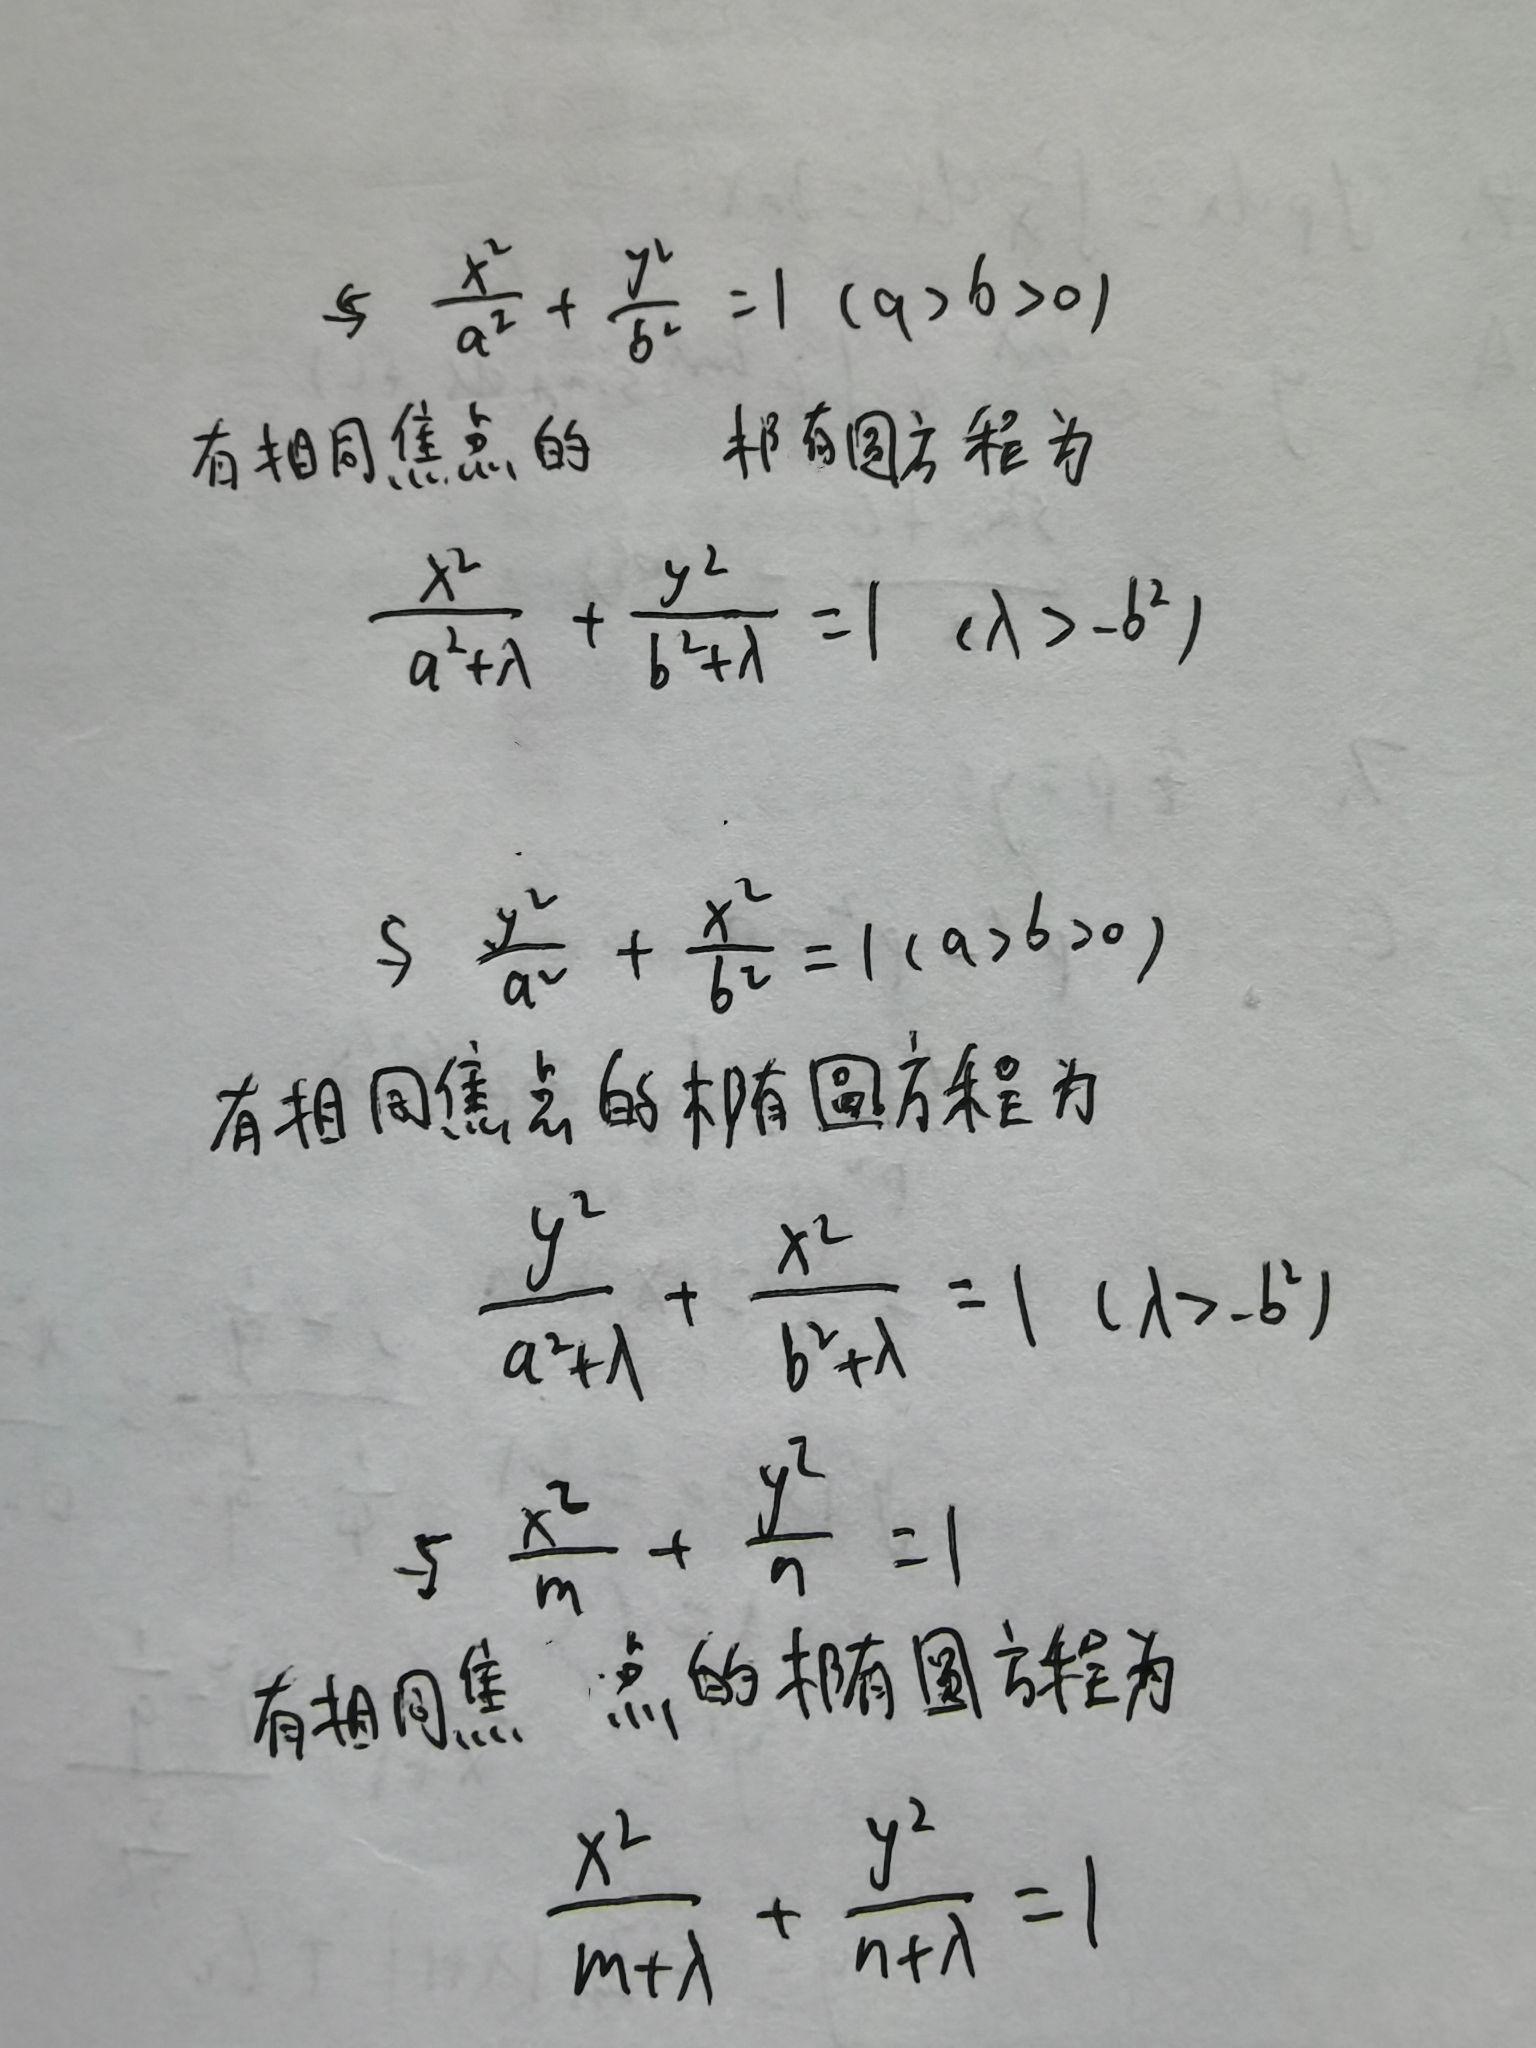 与 x²/a² + y²/b² = 1 (a>b>0)
有相同焦点的 椭圆方程为
x²/(a²+λ) + y²/(b²+λ) = 1 (λ>-b²)
与 y²/a² + x²/b² = 1 (a>b>0)
有相同焦点的椭圆方程为
y²/(a²+λ) + x²/(b²+λ) = 1 (λ>-b²)
与 x²/m + y²/n = 1
有相同焦点的椭圆方程为
x²/(m+λ) + y²/(n+λ) = 1